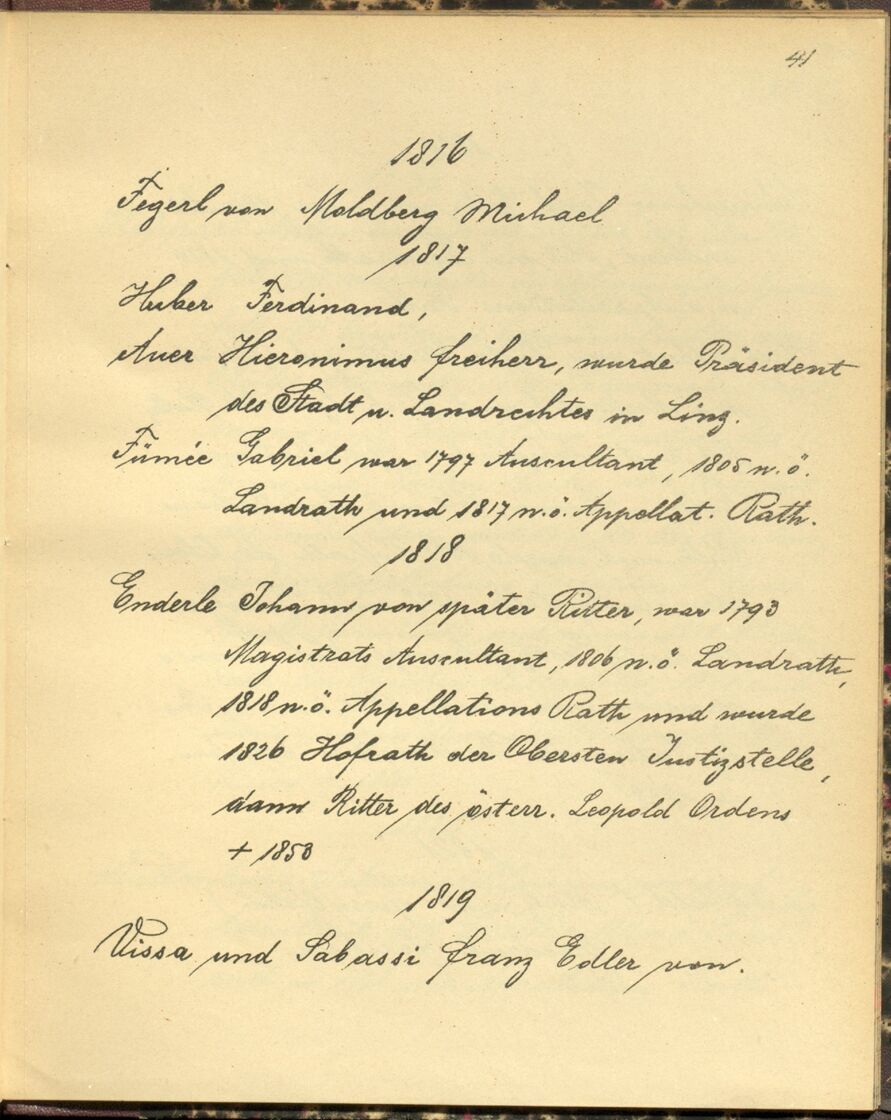 41
1816
Fegerl von Moldberg Michael
1817
Huber Ferdinand,
Auer Hieronimus freiherr, wurde Präsident
des Stadt u. Landrechtes in Linz.
Fümée Gabriel war 1797 Auscultant, 1805 n.ö.
Landrath und 1817 n.ö. Appellat. Rath.
1818
Enderle Johann von später Ritter, war 1793
Magistrats Auscultant, 1806 n.ö. Landrath,
1818 n.ö. Appellations Rath und wurde
1826 Hofrath der Obersten Justizstelle,
dann Ritter des österr. Leopold Ordens
+ 1853
1819
Vissa und Sabassi franz Edler von.